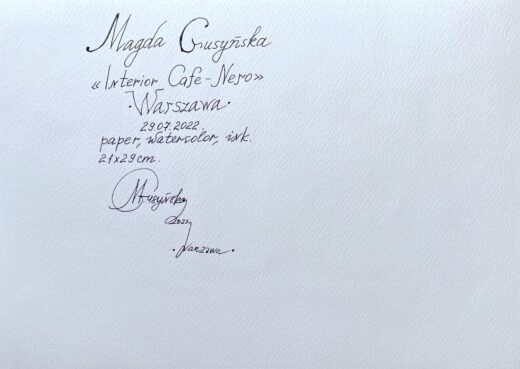 Magda Gusyńska
«Interior Cafe-Nero»
·Warszawa·
29.07.2022.
paper, watercolor, ink.
21x29cm.
MGusyńska
2022
·Warszawa·